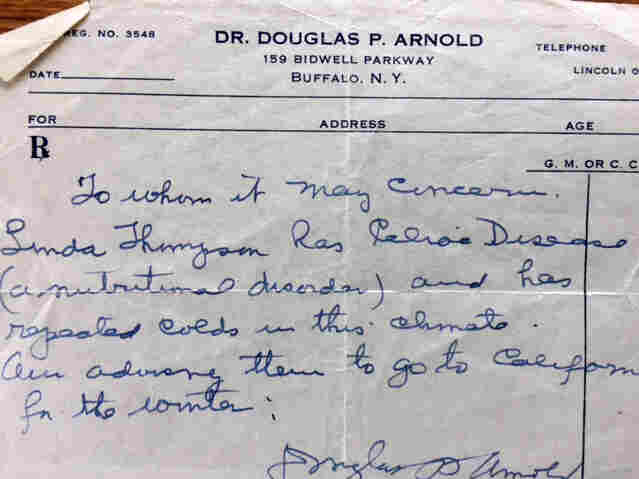 REG. NO. 3548
DR. DOUGLAS P. ARNOLD
159 BIDWELL PARKWAY
BUFFALO, N. Y.
TELEPHONE
LINCOLN
DATE
FOR ADDRESS AGE
℞
G. M. OR C. C
To whom it may concern.
Linda Thompson has Celiac Disease
(a nutritional disorder) and has
repeated colds in this climate.
Am advising them to go to Californ
for the winter:
Douglas P Arnold